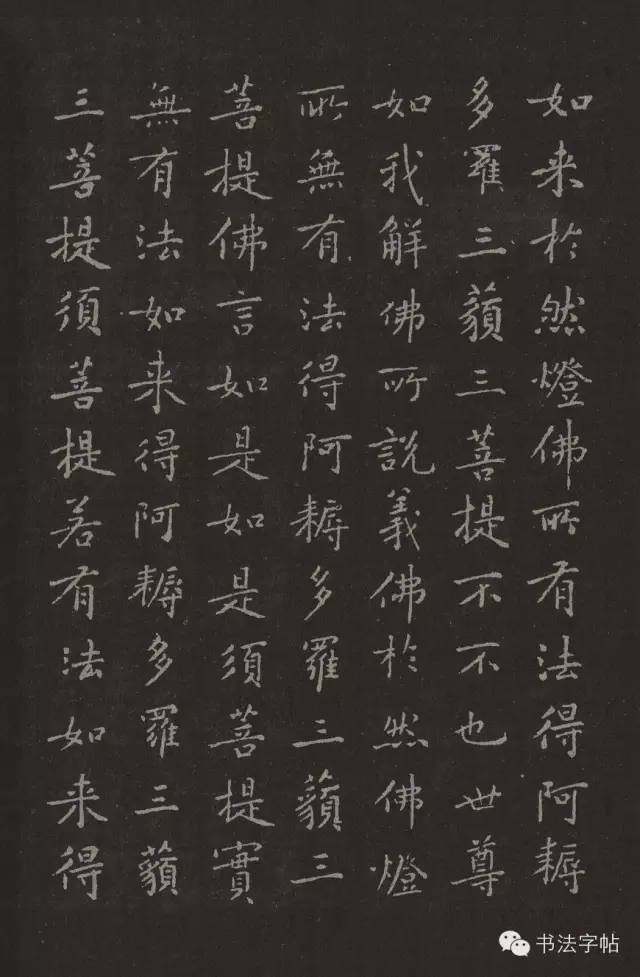 如来於然燈佛所有法得阿耨
多羅三藐三菩提不不也世尊
如我解佛所說義佛於然佛燈
所無有法得阿耨多羅三藐三
菩提佛言如是如是須菩提實
無有法如来得阿耨多羅三藐
三菩提須菩提若有法如来得
书法字帖